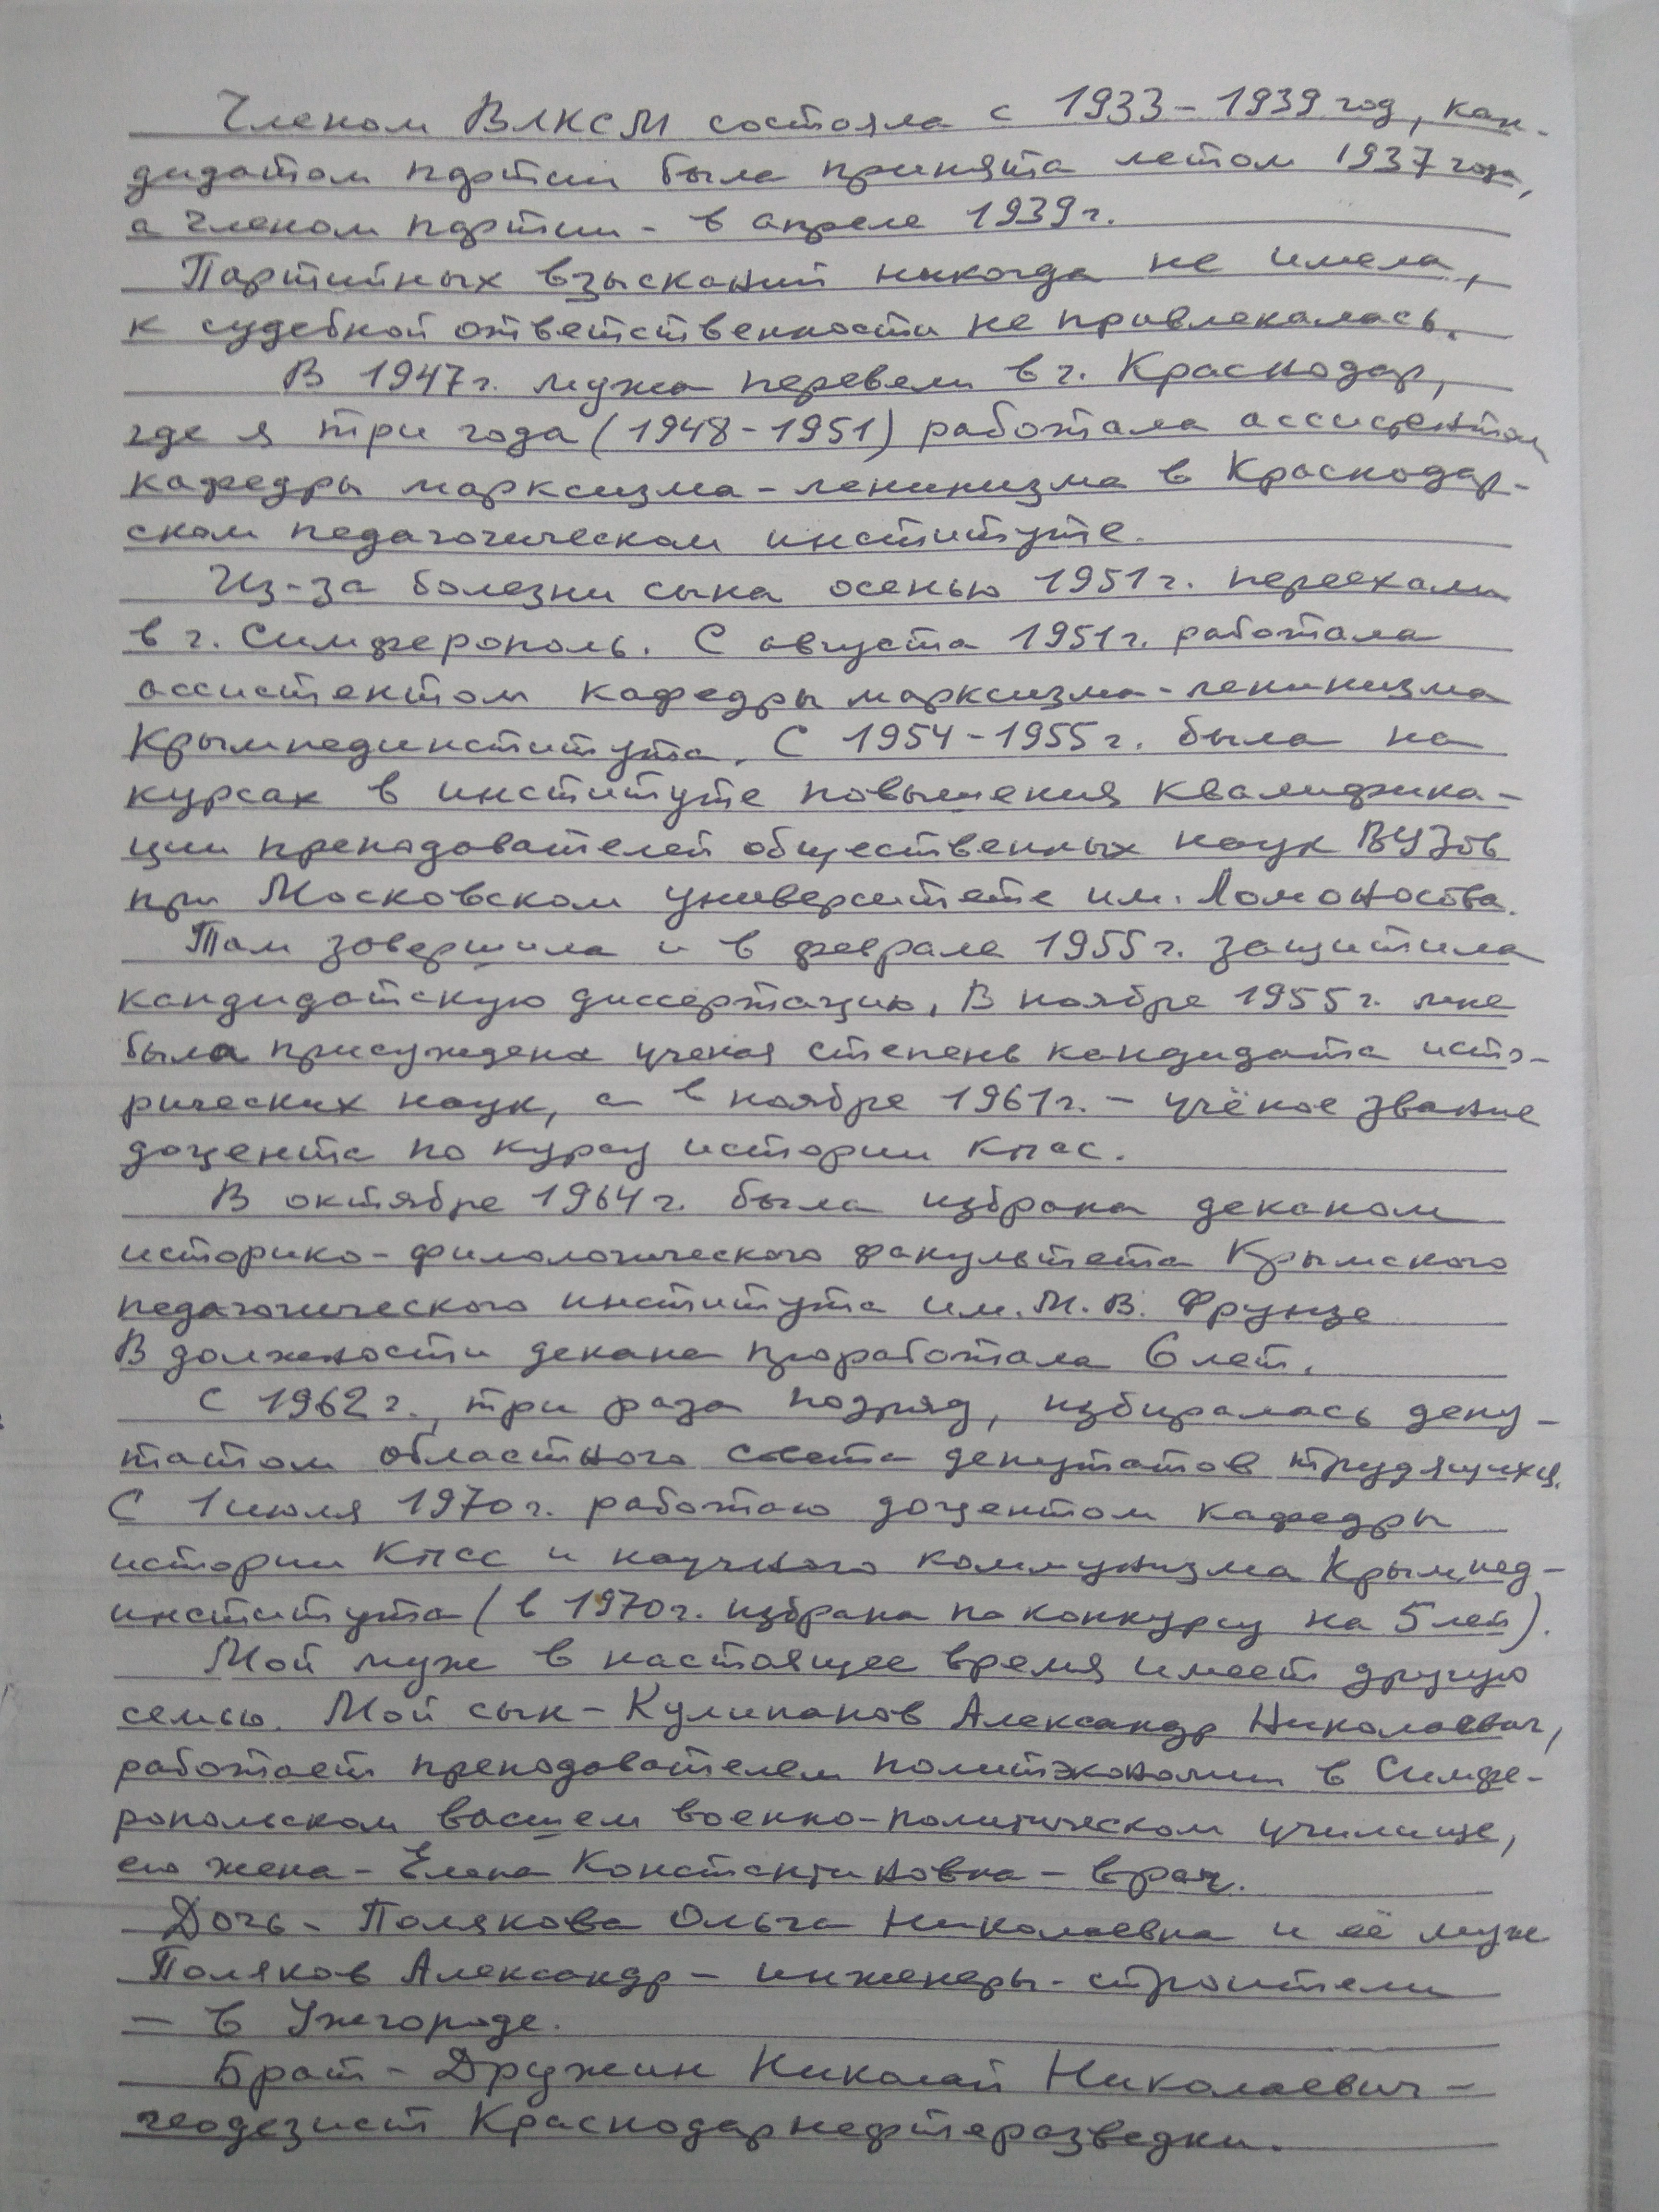 Членом ВЛКСМ состояла с 1933-1939 год, кан-
дидатом партии была принята летом 1937 года,
а членом партии - в апреле 1939 г.
Партийных взысканий никогда не имела,
к судебной ответственности не привлекалась.
В 1947 г. мужа перевели в г. Краснодар,
где я три года (1948-1951) работала ассистентом
кафедры марксизма-ленинизма в Краснодар-
ском педагогическом институте.
Из-за болезни сына осенью 1951 г. переехали
в г. Симферополь. С августа 1951 г. работала
ассистентом кафедры марксизма-ленинизма
Крымпединститута. С 1954-1955 г. была на
курсах в институте повышения квалифика-
ции преподавателей общественных наук ВУЗов
при Московском университете им. Ломоносова.
Там завершила и в феврале 1955 г. защитила
кандидатскую диссертацию. В ноябре 1955 г. мне
была присуждена ученая степень кандидата исто-
рических наук, а в ноябре 1961 г. - учёное звание
доцента по курсу истории КПСС.
В октябре 1964 г. была избрана деканом
историко-филологического факультета Крымского
педагогического института им. М. В. Фрунзе
В должности декана проработала 6 лет.
С 1962 г., три раза подряд, избиралась депу-
татом областного совета депутатов трудящихся.
С 1 июля 1970 г. работаю доцентом кафедры
истории КПСС и научного коммунизма Крымпед-
института (в 1970 г. избрана по конкурсу на 5 лет).
Мой муж в настоящее время имеет другую
семью. Мой сын - Кулипанов Александр Николаевич,
работает преподавателем политэкономии в Симфе-
ропольском высшем военно-политическом училище,
его жена - Елена Константиновна - врач.
Дочь - Полякова Ольга Николаевна и её муж
Поляков Александр - инженеры-строители
- в Ужгороде.
Брат - Дружин Николай Николаевич -
геодезист Краснодарнефтеразведки.